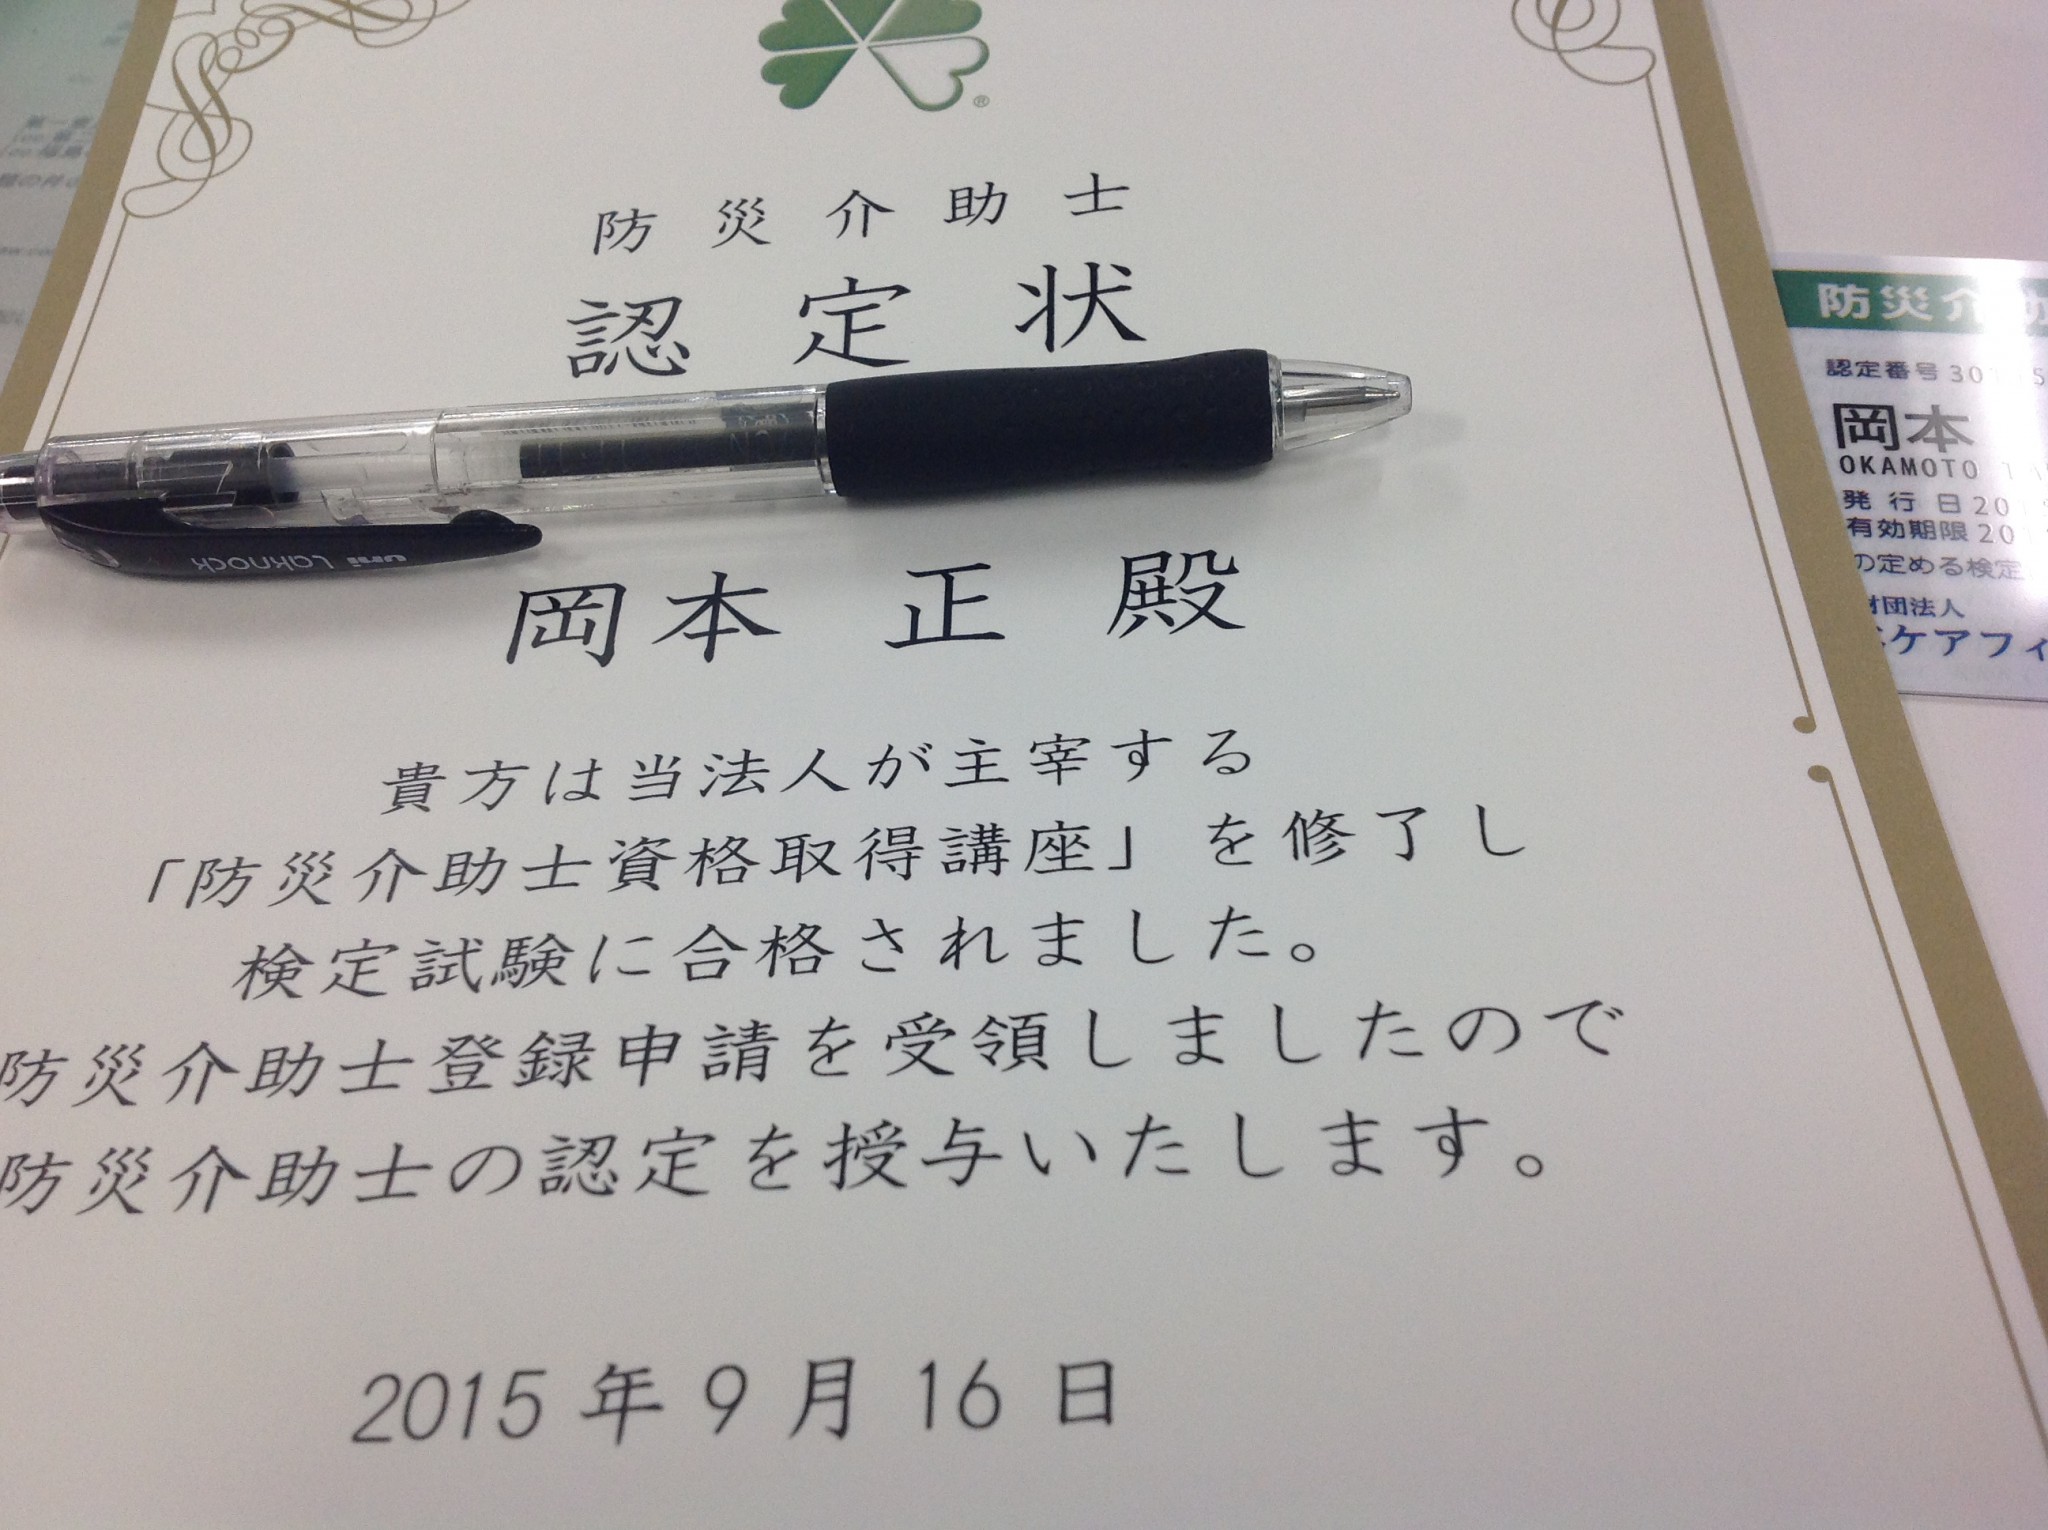 防災介助士
認定状
uni Laknock
岡本 正 殿
貴方は当法人が主宰する
「防災介助士資格取得講座」を修了し
検定試験に合格されました。
防災介助士登録申請を受領しましたので
防災介助士の認定を授与いたします。
2015年9月16日
防災介助
認定番号 301
岡本
OKAMOTO TA
発行日 201
有効期限 201
の定める検定
財団法人
ケアフィ